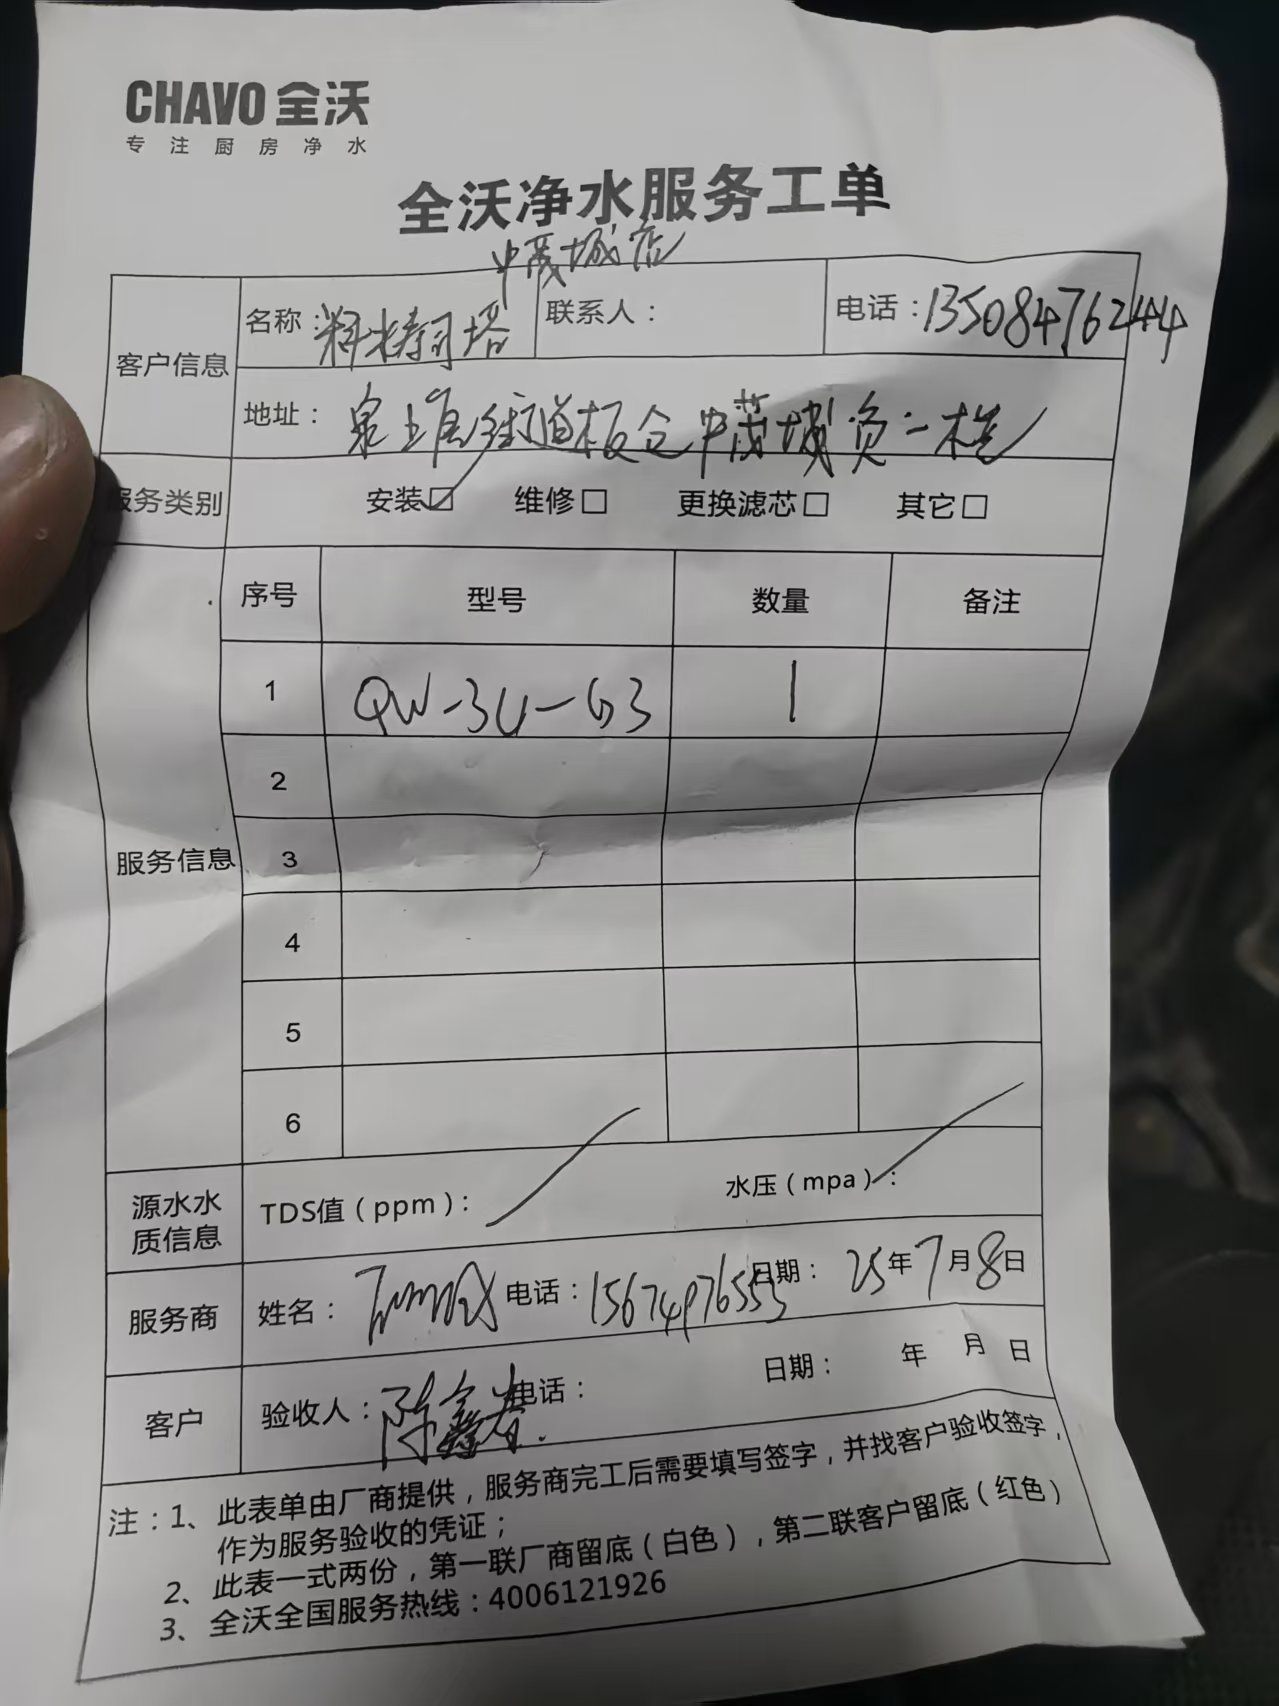 CHAVO 全沃
专注厨房净水
全沃净水服务工单
中茂城店
客户信息
名称：
寿司塔
联系人：
电话：13508476244
地址：泉塘街道板仓中茂城负一楼
服务类别 安装☑ 维修□ 更换滤芯□ 其它□
服务信息
序号 型号 数量 备注
1 QW-3U-G3 1
2
3
4
5
6
源水水质信息
TDS值（ppm）： 水压（mpa）：
服务商 姓名： 电话：15674976553 日期：25年7月8日
客户 验收人：陈鑫春. 电话： 日期： 年 月 日
注：1、此表单由厂商提供，服务商完工后需要填写签字，并找客户验收签字，
作为服务验收的凭证；
2、此表一式两份，第一联厂商留底（白色），第二联客户留底（红色）
3、全沃全国服务热线：4006121926